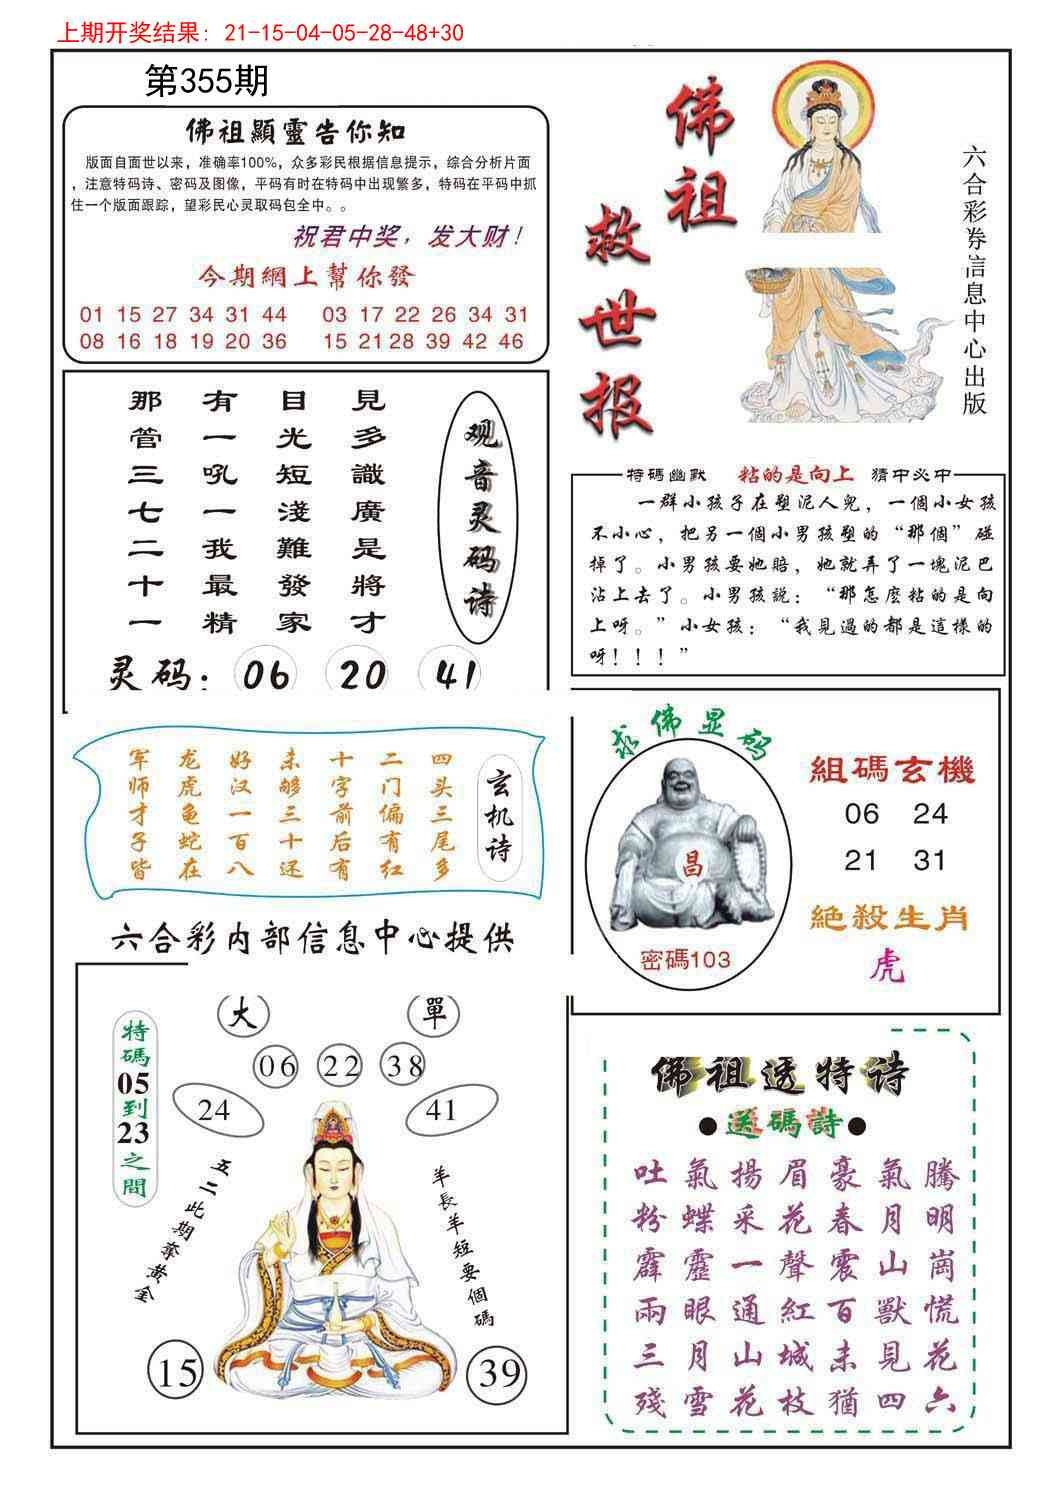 上期开奖结果：21-15-04-05-28-48+30
第355期
佛祖顯靈告你知
版面自面世以来，准确率100%，众多彩民根据信息提示，综合分析片面
，注意特码诗、密码及图像，平码有时在特码中出现繁多，特码在平码中抓
住一个版面跟踪，望彩民心灵取码包全中。。
祝君中奖，发大财！
今期網上幫你發
01 15 27 34 31 44 03 17 22 26 34 31
08 16 18 19 20 36 15 21 28 39 42 46
佛祖
救世报
六合彩券信息中心出版
見多識廣是將才
目光短淺難發家
有一吼一我最精
那管三七二十一
观音灵码诗
灵码：06 20 41
特碼幽默 粘的是向上 猜中必中
一群小孩子在塑泥人兒，一個小女孩
不小心，把另一個小男孩塑的“那個”碰
掉了。小男孩要她賠，她就弄了一塊泥巴
沾上去了。小男孩説：“那怎麽粘的是向
上呀。”小女孩：“我見過的都是這樣的
呀！！！”
玄机诗
四头三尾多
二门偏有红
十字前后有
未够三十还
好汉一百八
龙虎龟蛇在
军师才子皆
求佛显码
昌
密碼103
組碼玄機
06 24
21 31
絕殺生肖
虎
六合彩内部信息中心提供
大 單
06 22 38
24 41
特碼05到23之間
五二此期奪黄金
羊長羊短要個碼
15 39
佛祖透特诗
●送碼詩●
吐氣揚眉豪氣騰
粉蝶采花春月明
霹靂一聲震山崗
兩眼通紅百獸慌
三月山城未見花
殘雪花枝猶四六